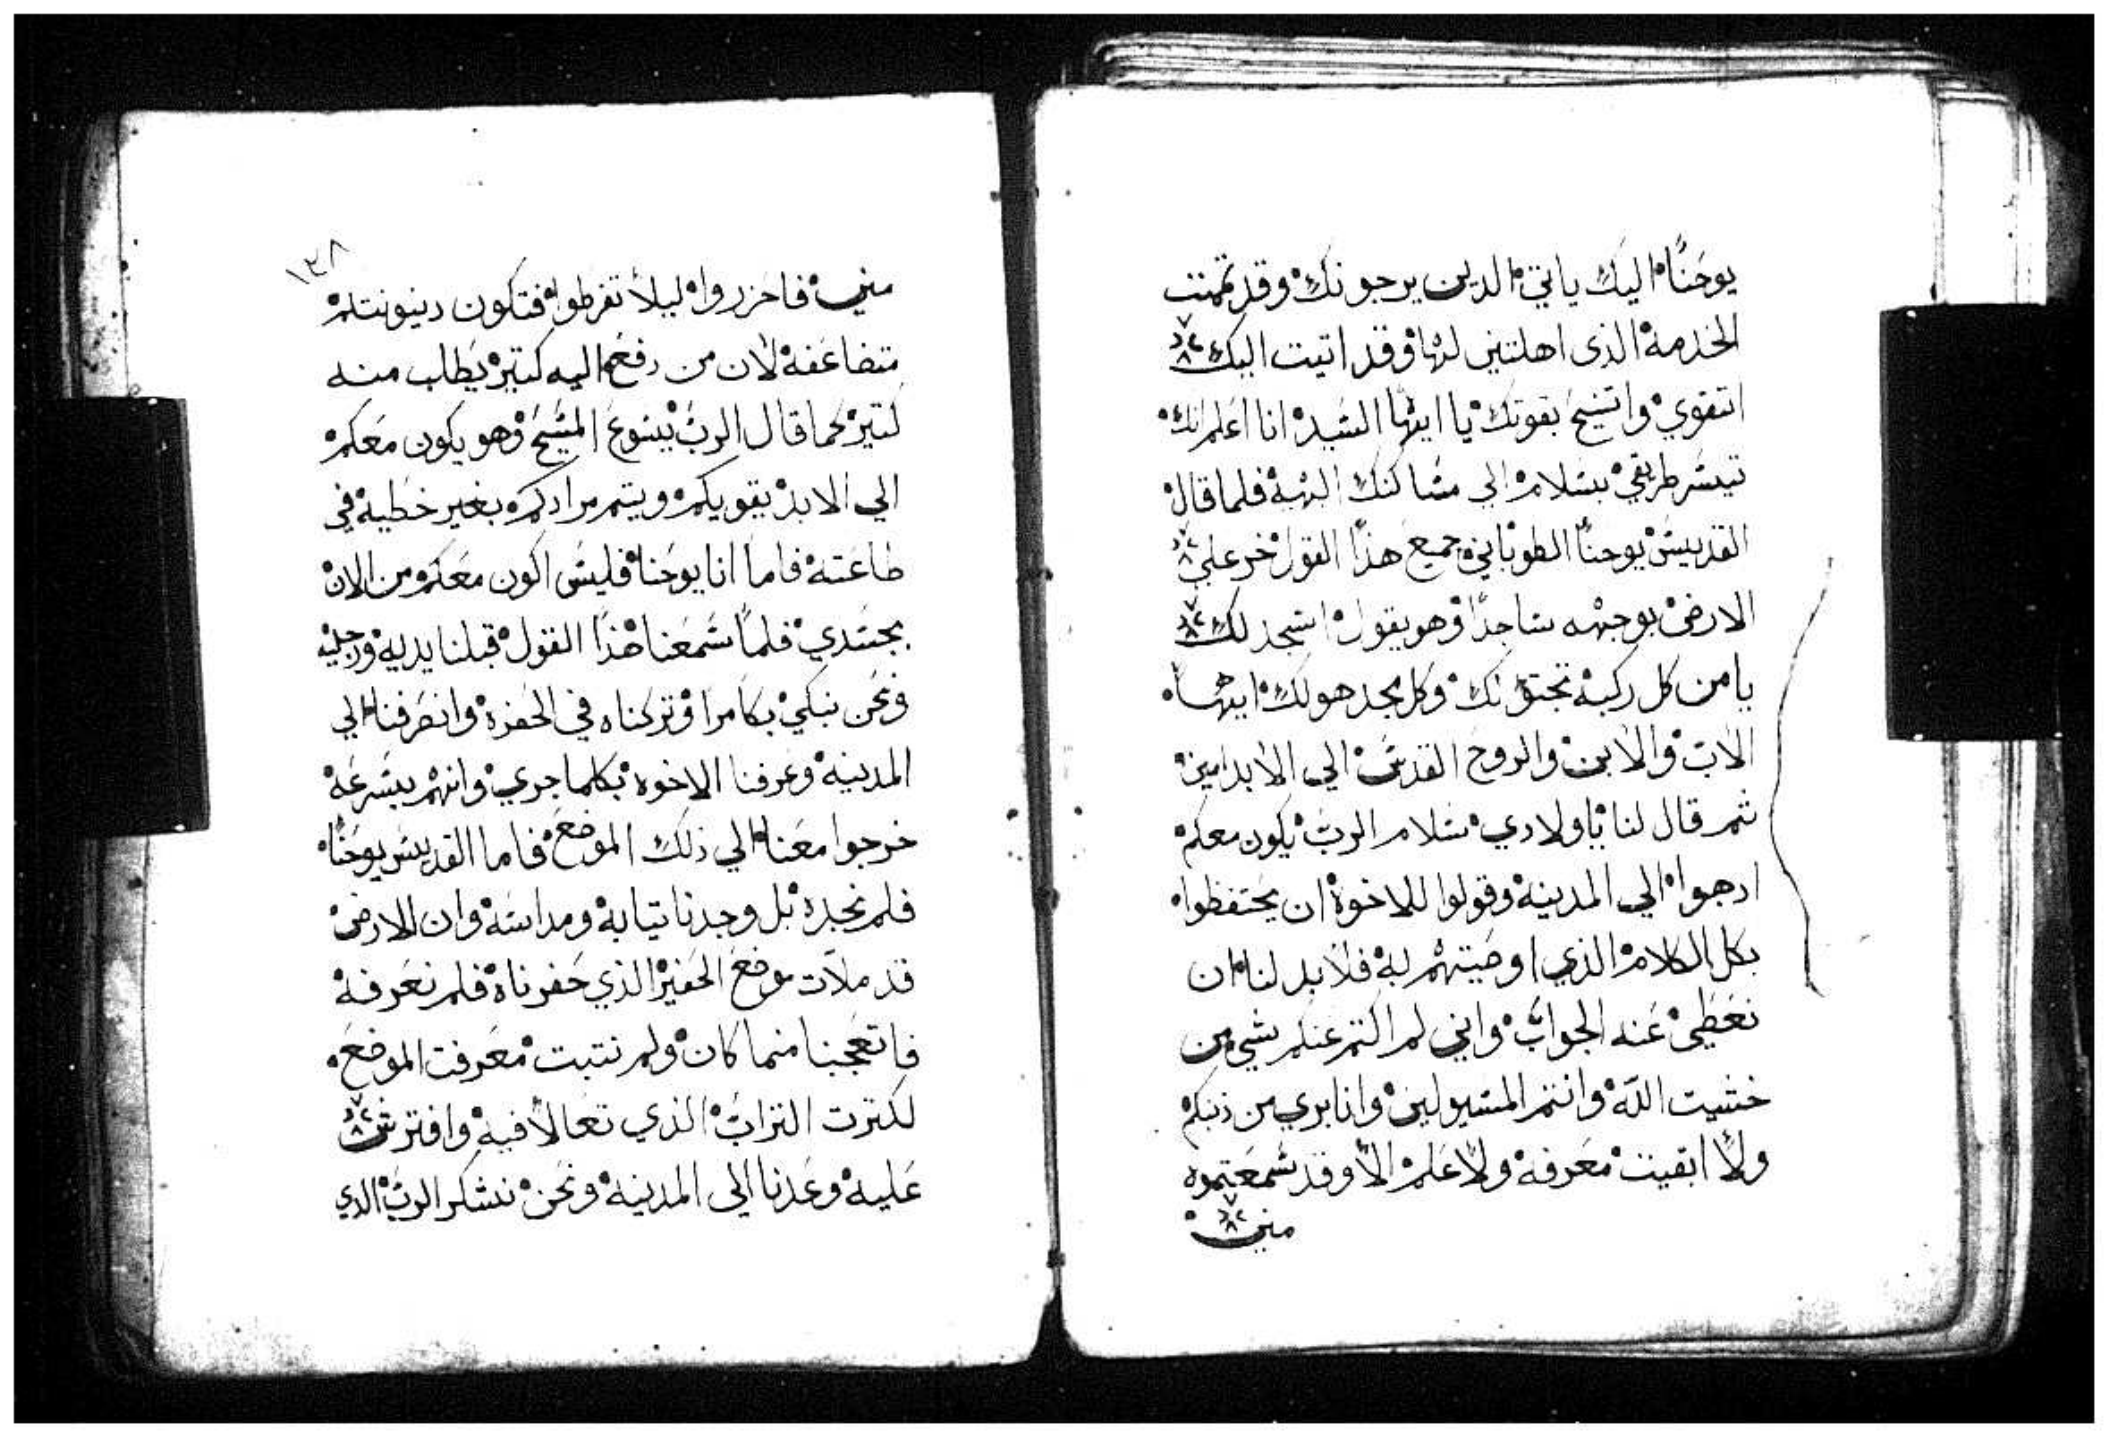 يوحنا اليك ياتي الدين يرجونك وقد تممت
الخدمة الذى اهلتني لها وقد اتيت اليك
اتقوي واتشح بقوتك يا ايها السيد انا اعلم انك
تيسر طريقي بسلام الي مساكنك البهية فلما قال
القديس يوحنا الطوباني جميع هذا القول خر علي
الارض بوجهه ساجدا وهو يقول اسجد لك
يا من كل ركبة تجتو لك وكل مجد هو لك ايها
الاب والابن والروح القدس الي الابد امين
ثم قال لنا يا ولادي سلام الرب يكون معكم
ادهبوا الي المدينة وقولوا للاخوة ان يحتفظوا
بكل الكلام الذي اوصيتهم به فلا بد لنا ان
نعطي عنه الجواب واني لم اكتم عنكم بشي من
خشيت الله وانتم المسيولين وانا بري من ذنبكم
ولا ابقيت معرفة ولا علم الا وقد سمعتموه
مني
١٣٨
مني فاحزروا ليلا تفرطوا فتكون دينونتلم
متضاعفة لان من دفع اليه كتير يطلب منه
كتير كما قال الرب يسوع المسيح وهو يكون معكم
الي الابد يقويكم ويتمم مرادكم بغير خطية في
طاعته فاما انا يوحنا فليس اكون معكم من الان
بجسدي فلما سمعنا هذا القول قبلنا يديه ورجليه
ونحن نبكي بكا مرا وتركناه في الحفرة وانصرفنا الي
المدينة وعرفنا الاخوه بكلما جري وانهم بسرعة
خرجوا معنا الي ذلك الموضع فاما القديس يوحنا
فلم نجده بل وجدنا تيابه ومداسه وان الارض
قد ملات موضع الحفير الذي حفرناه فلم نعرفه
فاتعجبنا منما كان ولم نتبت معرفت الموضع
لكترت التراب الذي تعالا فيه وافترش
عليه وعدنا الي المدينة ونحن نشكر الرب الدي